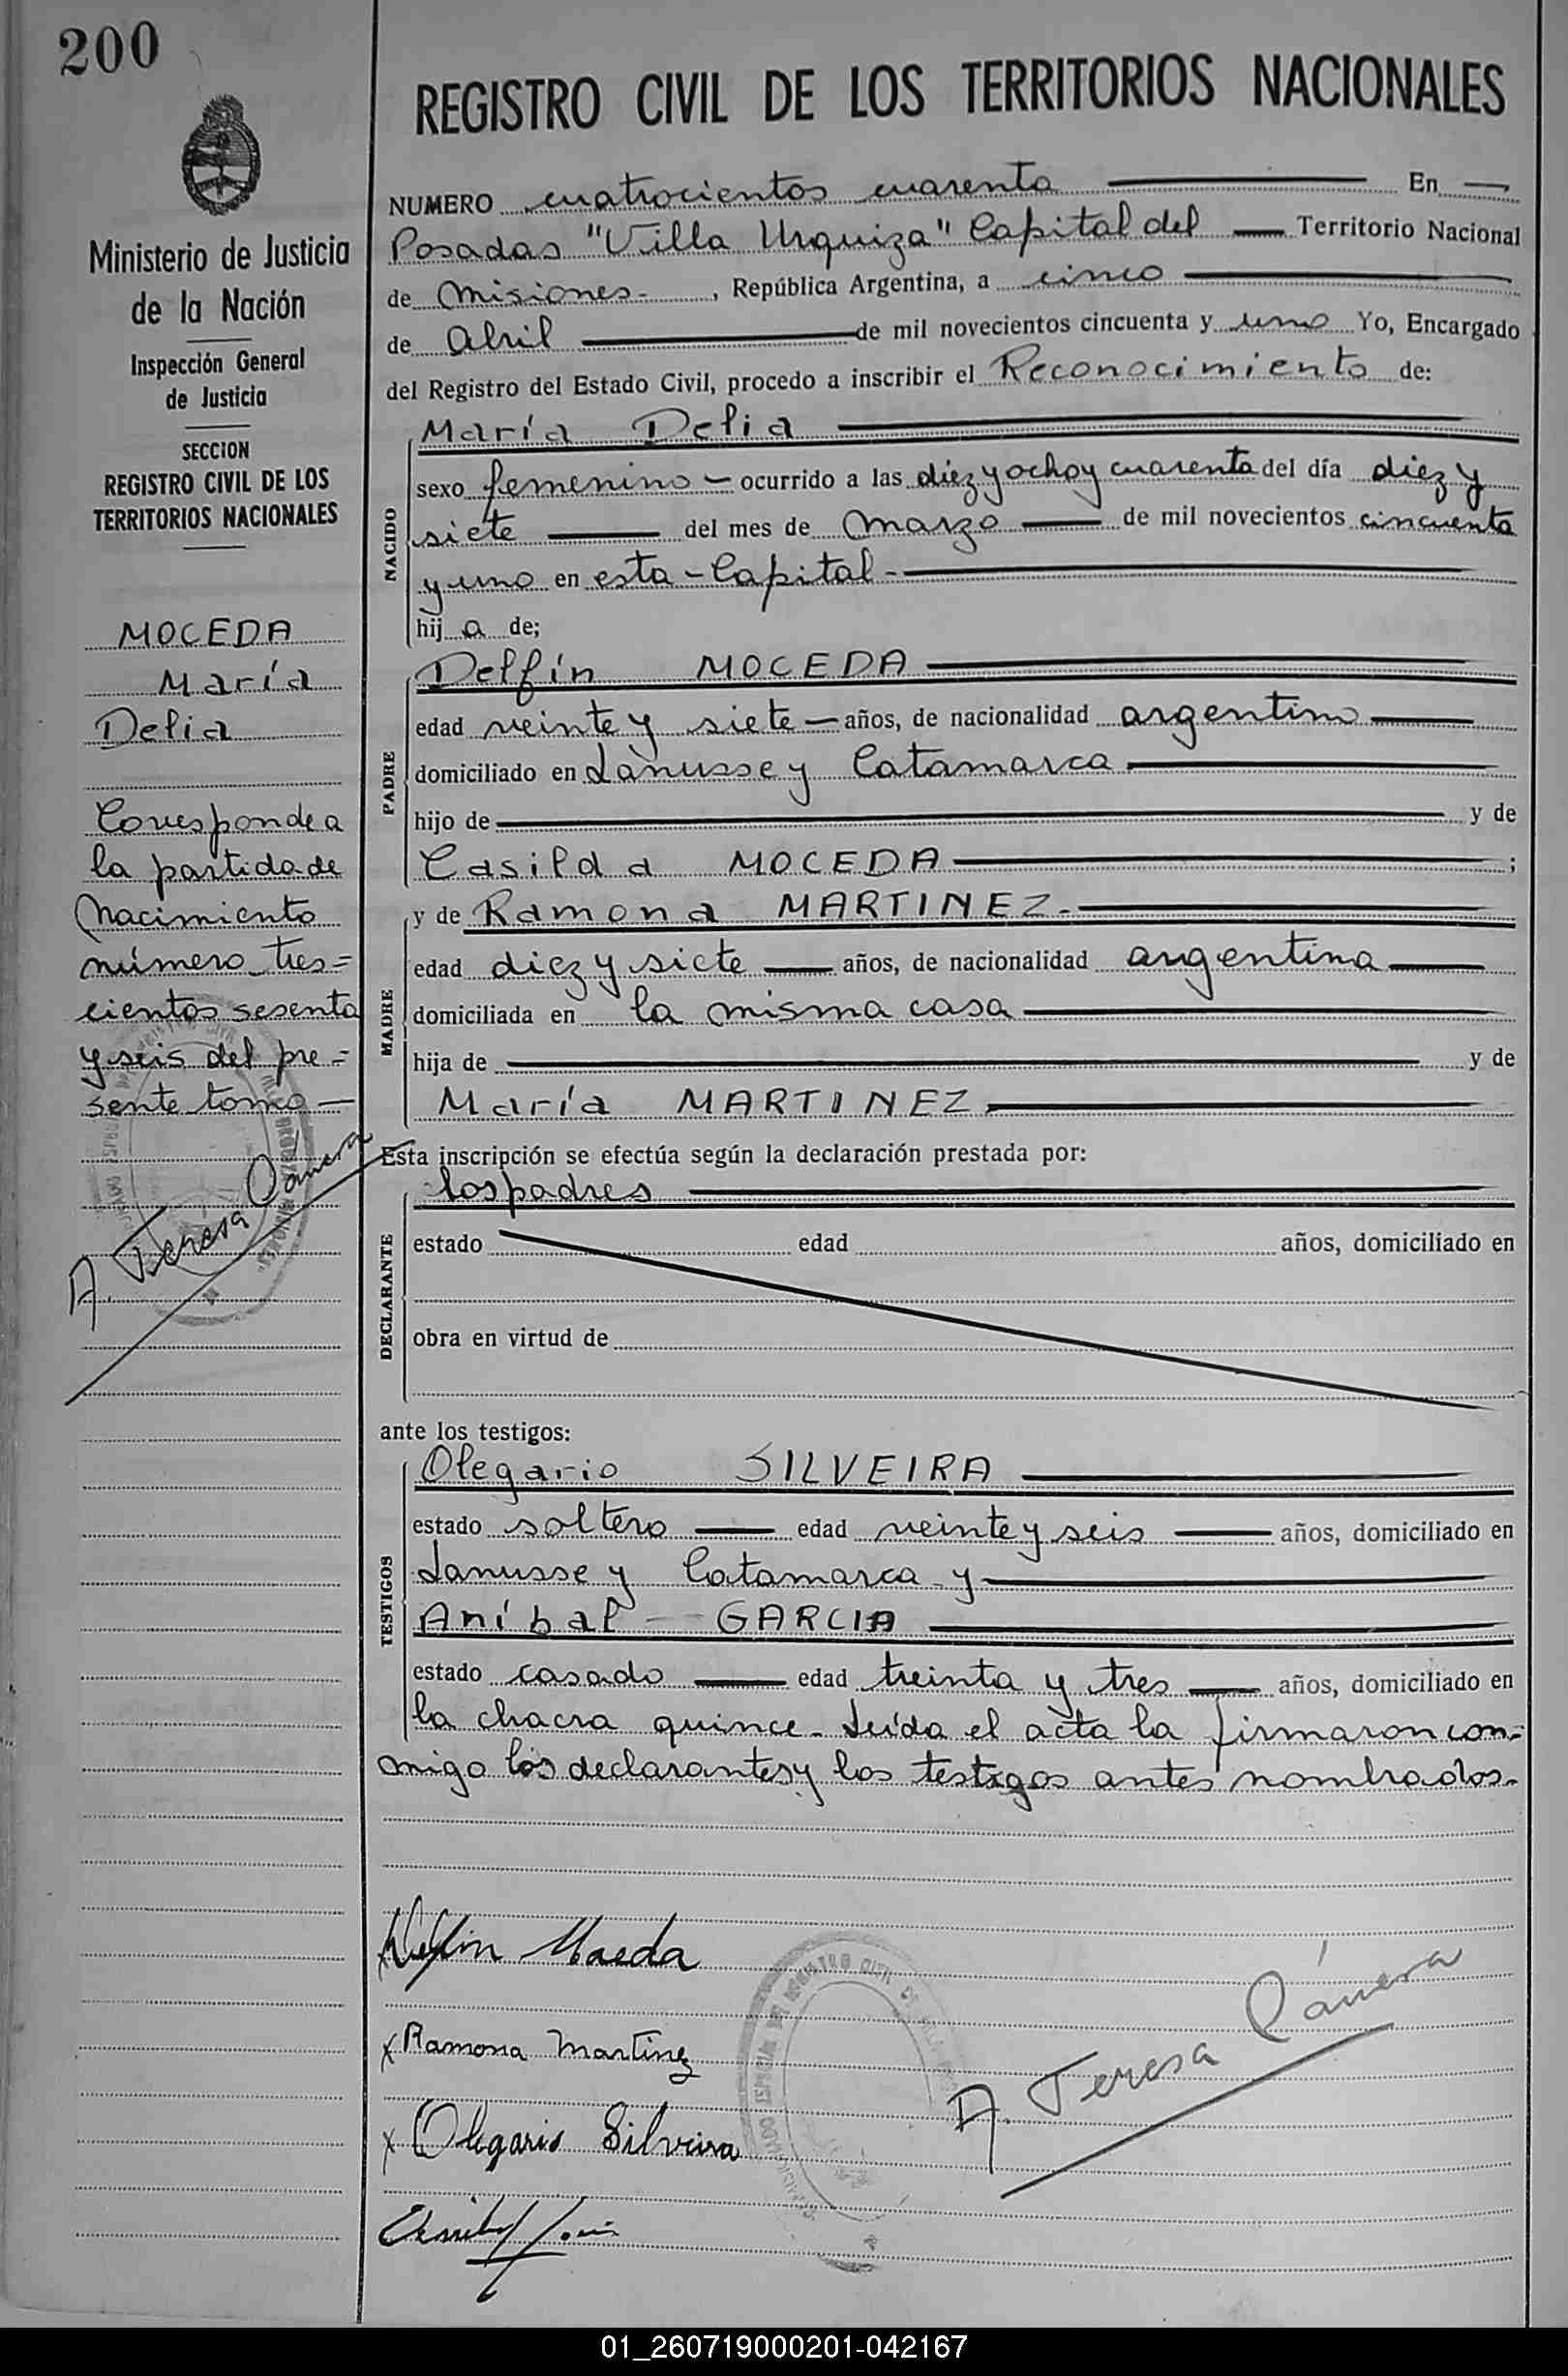 200
REGISTRO CIVIL DE LOS TERRITORIOS NACIONALES
Ministerio de Justicia
de la Nación
Inspección General
de Justicia
SECCION
REGISTRO CIVIL DE LOS
TERRITORIOS NACIONALES
MOCEDA
María
Delia
Corresponde a
la partida de
Nacimiento
número tres=
cientos sesenta
y seis del pre=
sente tomo
A. Teresa
NUMERO cuatrocientos cuarenta En
Posadas "Villa Urquiza" Capital del Territorio Nacional
de Misiones , República Argentina, a cinco
de Abril de mil novecientos cincuenta y uno Yo, Encargado
del Registro del Estado Civil, procedo a inscribir el Reconocimiento de:
NACIDO
María Delia
sexo femenino ocurrido a las diez y ocho y cuarenta del día diez y
siete del mes de marzo de mil novecientos cincuenta
y uno en esta Capital
hija de;
PADRE
Delfín MOCEDA
edad veinte y siete años, de nacionalidad argentino
domiciliado en Lanusse y Catamarca
hijo de y de
Casilda MOCEDA ;
MADRE
y de Ramona MARTINEZ.
edad diez y siete años, de nacionalidad argentina
domiciliada en la misma casa
hija de y de
María MARTINEZ
Esta inscripción se efectúa según la declaración prestada por:
DECLARANTE
los padres
estado edad años, domiciliado en
obra en virtud de
ante los testigos:
TESTIGOS
Olegario SILVEIRA
estado soltero edad veinte y seis años, domiciliado en
Lanusse y Catamarca y
Aníbal GARCIA
estado casado edad treinta y tres años, domiciliado en
la chacra quince. Leída el acta la firmaron con=
migo los declarantes y los testigos antes nombrados.
Delfin Moceda
x Ramona Martinez
x Olegario Silveira
A. Teresa
01_260719000201-042167